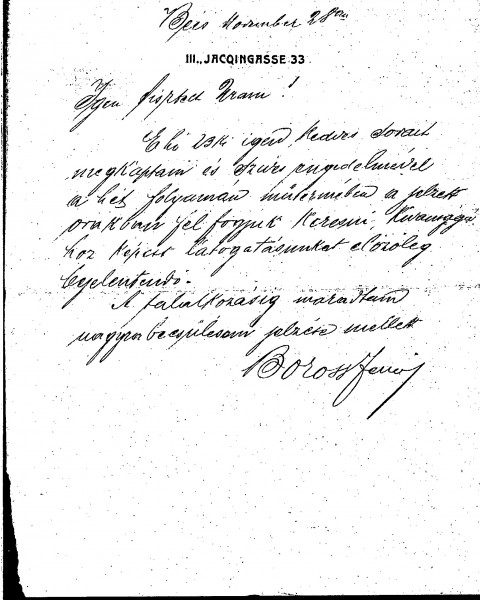 Bécs November 28án
III., JACQINGASSE 33
Igen tisztelt Uram!
E hó 23ki igen kedves sorait
megkaptam és szíves engedelmével
a hét folyamán műtermében a jelzett
órákban fel fogjuk keresni, kívánságá
hoz képest látogatásunkat előzőleg
bejelentendő.
A találkozásig maradtam
nagyrabecsülésem jelzése mellett
Boross Jenő